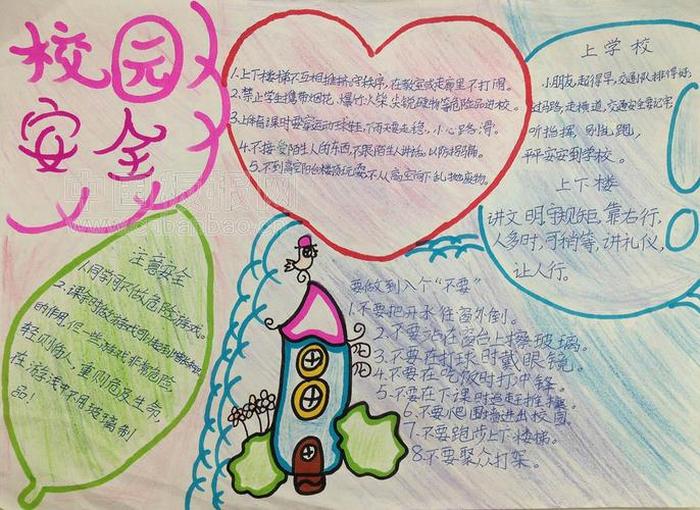 校园
安全
1.上下楼梯不互相推挤,守秩序,在教室或走廊里不打闹。
2.禁止学生携带烟花、爆竹、火柴、尖锐硬物等危险品进校。
3.上体育课时要穿运动球鞋,下雨天要走稳,小心路滑。
4.不接受陌生人的东西,不跟陌生人讲话,以防拐骗。
5.不到高空阳台楼顶玩耍,不从高空向下乱抛废物。
上学校
小朋友,起得早,交通队排得好,
过马路,走横道,交通安全要记牢
听指挥,别乱跑,
平平安安到学校。
上下楼
讲文明,守规矩,靠右行,
人多时,可稍等,讲礼仪,
让人行。
注意安全
1.同学间不做危险游戏。
2.课余时做游戏可
的作用,但一些游戏非常危险
轻则伤人,重则危及生命,
在游戏中不用玻璃制
品!
要做到八个“不要”
1.不要把开水往窗外倒。
2.不要站在窗台上擦玻璃。
3.不要在打球时戴眼镜。
4.不要在吃饭时打冲锋。
5.不要在下课时追赶推搡。
6.不要爬围墙进出校园。
7.不要跑步上下楼梯。
8.不要聚众打架。